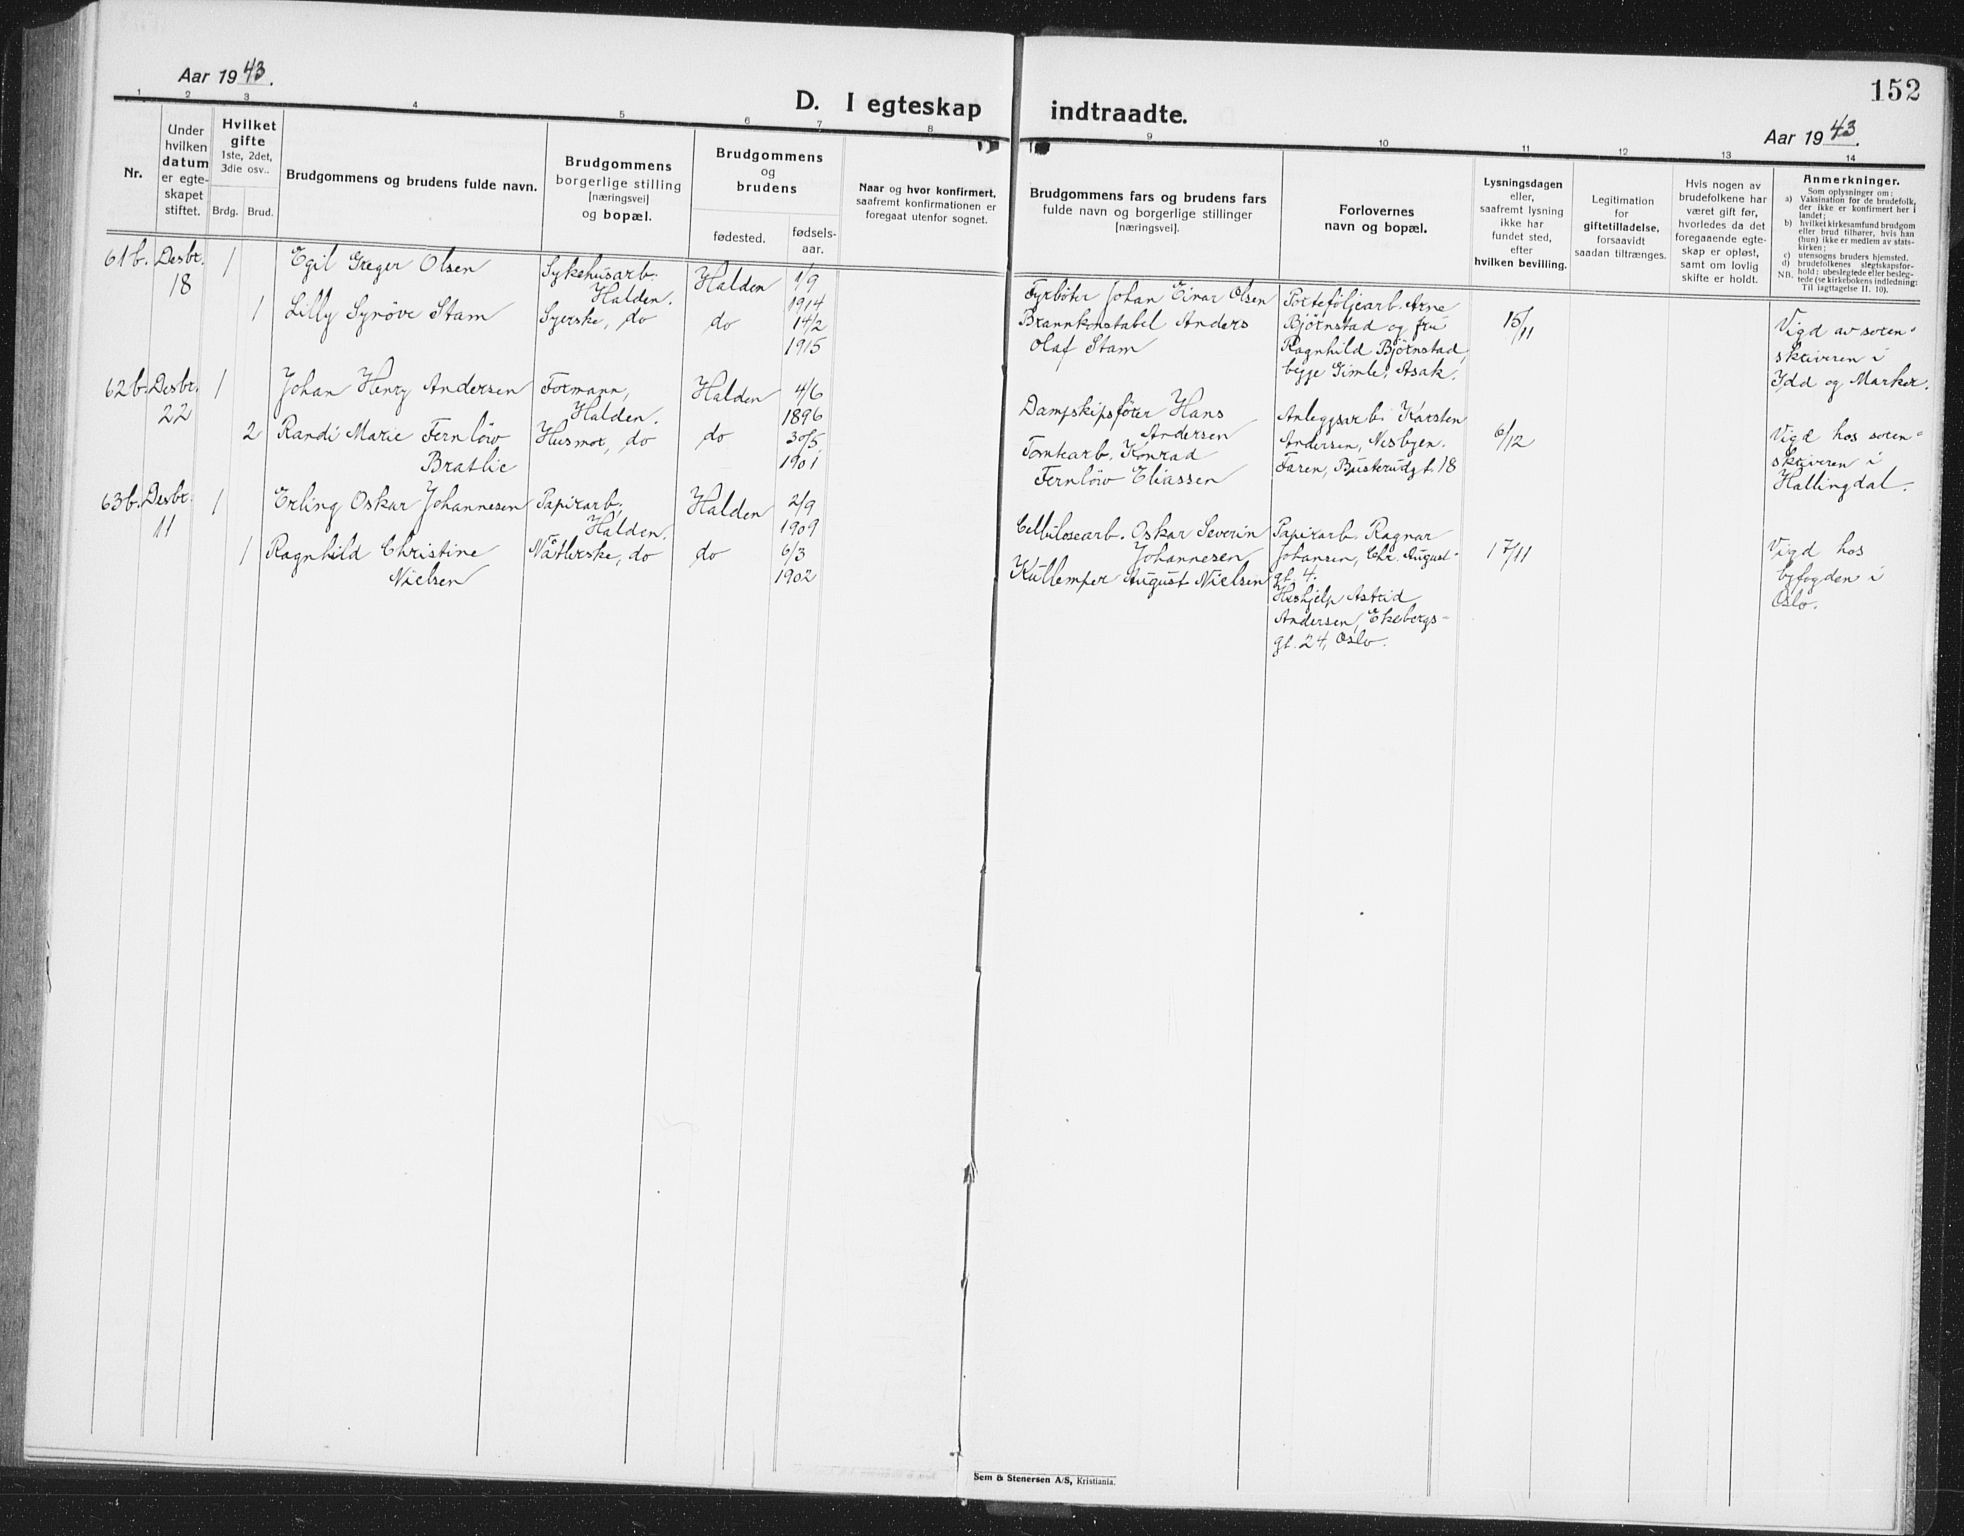 Aar 1943.
D. I egteskap indtraadte.
152
Aar 1943.
1 2 3 4 5 6 7 8 9 10 11 12 13 14
Nr.
Under
hvilken
datum
er egte-
skapet
stiftet.
Hvilket
gifte
1ste, 2det,
3die osv..
Brdg. Brud.
Brudgommens og brudens fulde navn.
Brudgommens
borgerlige stilling
[næringsvei]
og bopæl.
Brudgommens
og
brudens
fødested.
fødsels-
aar.
Naar og hvor konfirmert,
saafremt konfirmationen er
foregaat utenfor sognet.
Brudgommens fars og brudens fars
fulde navn og borgerlige stillinger
[næringsvei].
Forlovernes
navn og bopæl.
Lysningsdagen
eller,
saafremt lysning
ikke har
fundet sted,
efter
hvilken bevilling.
Legitimation
for
giftetilladelse,
forsaavidt
saadan tiltrænges.
Hvis nogen av
brudefolkene har
været gift før,
hvorledes da det
foregaaende egte-
skap er opløst,
samt om lovlig
skifte er holdt.
Anmerkninger.
Som oplysninger om:
a) Vaksination for de brudefolk,
der ikke er konfirmert her i
landet;
b) hvilket kirkesamfund brudgom
eller brud tilhører, hvis han
(hun) ikke er medlem av stats-
kirken;
c) utensogns bruders hjemsted.
d) brudefolkenes slegtskapsfor-
hold; ubeslegtede eller besleg-
NB. tede (se kirkebokens indledning:
Til iagttagelse II. 10).
61b. Desbr.
18
1
Egil Greger Olsen
Sykehusarb.
Halden.
Halden
1/9
1914
1
Lilly Synöve Stam
Syerske, do
do
14/2
1915
Fyrbøter Johan Einar Olsen
Brannkonstabel Anders
Olaf Stam
Porteføljearb. Arne
Bjørnstad og fru
Ragnhild Bjørnstad,
begge Gimle, Asak.
15/11
Vigd av soren-
skriveren i
Idd og Marker.
62b. Desbr.
22
1
Johan Henry Andersen
Formann,
Halden.
Halden
4/6
1896
2
Randi Marie Fernlöw
Bratlie
Husmor, do
do
30/5
1901
Dampskipsfører Hans
Andersen
Tomtearb. Konrad
Fernlöw Eliassen
Anleggsarb. Karsten
Andersen, Nesbyen.
Faren, Busterudgt. 18
6/12
Vigd hos soren-
skriveren i
Hallingdal.
63b. Desbr.
11
1
Erling Oskar Johannesen
Papirarb.,
Halden.
Halden
2/9
1909
1
Ragnhild Christine
Nielsen
Nåtlerske, do
do
6/3
1902
Cellulosearb. Oskar Severin
Johannesen
Kullemper August Nielsen
Papirarb. Ragnar
Johansen, Chr. August-
gt. 4.
Hushjelp Astrid
Andersen, Ekebergs-
gt. 24, Oslo.
17/11
Vigd hos
byfogden i
Oslo.
Sem & Stenersen A/S, Kristiania.